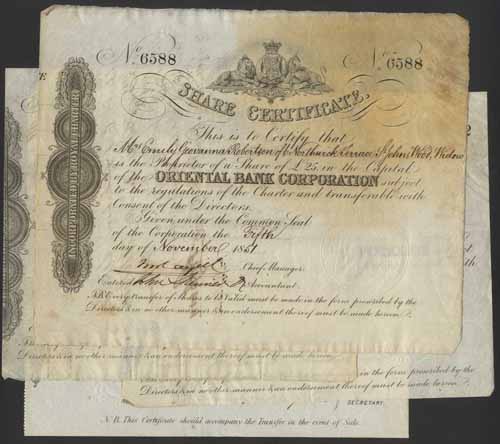 No. 6588 No. 6588
SHARE CERTIFICATE.
INCORPORATED BY ROYAL CHARTER
This is to Certify that
Mrs Emily Giovanna Robertson of Northwick Terrace St John Wood, Widow
is the Proprietor of a Share of £25 in the Capital
of the ORIENTAL BANK CORPORATION subject
to the regulations of the Charter and transferable with
Consent of the Directors.
Given under the Common Seal
of the Corporation the Fifth
day of November 1851
Chief Manager.
Entered John Accountant.
N.B. Every transfer of Shares to be Valid must be made in the form prescribed by the
Directors & in no other manner & an endorsement thereof must be made hereon.
Directors & in no other manner & an endorsement thereof must be made hereon.
in the form prescribed by the
Directors & in no other manner & an endorsement thereof must be made hereon.
SECRETARY.
N.B. This Certificate should accompany the Transfer in the event of Sale.